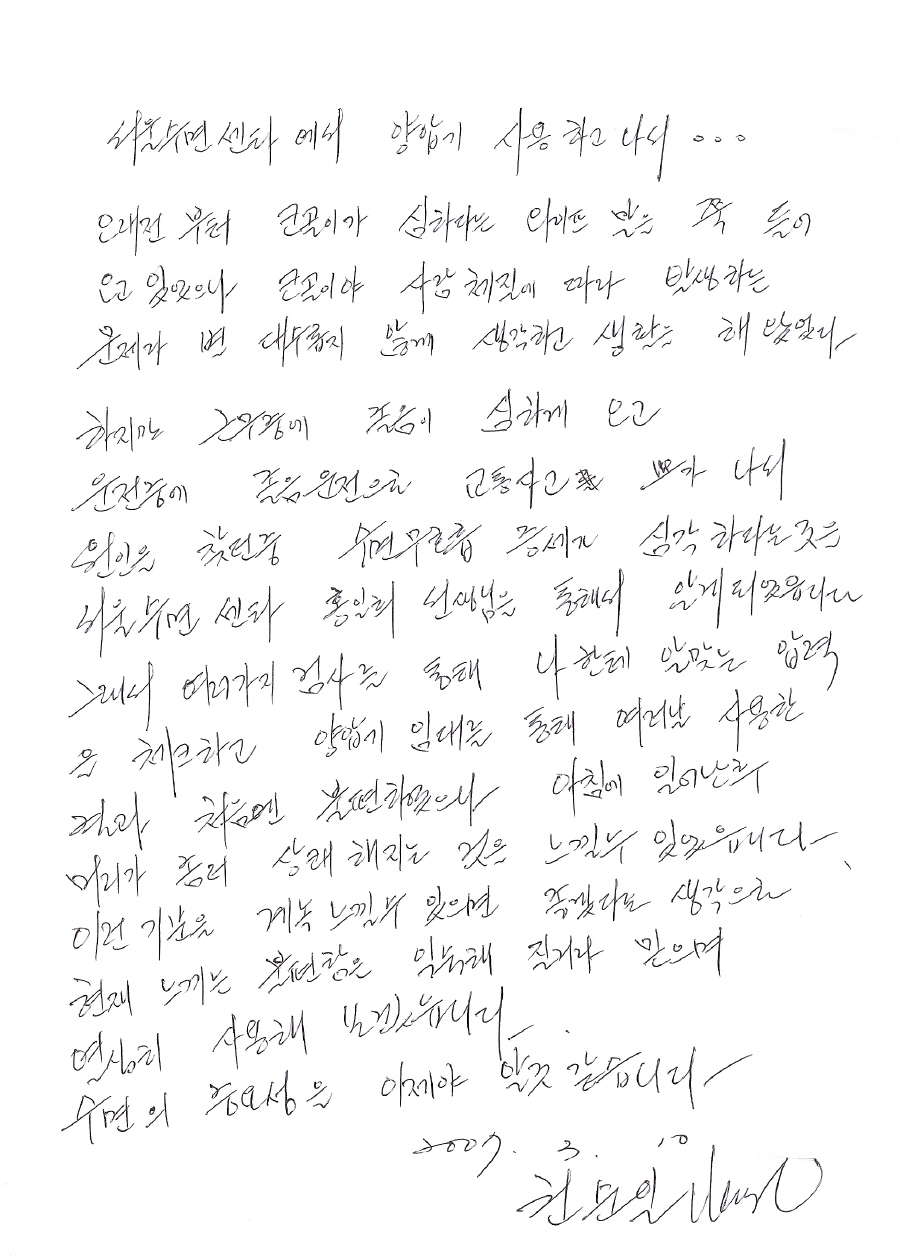 서울수면센타에서 양압기 사용하고 나서 ...
오래전 부터 코골이가 심하다는 와이프 말을 쭉 들어
오고 있었으나 코골이야 사람 체질에 따라 발생하는
문제라 별 대수롭지 않게 생각하고 생활을 해 왔었다
하지만 근무중에 졸음이 심하게 오고
운전중에 졸음운전으로 교통사고 나서
원인을 찾던중 수면무호흡 증세가 심각 하다는 것을
서울수면센타 홍일희 선생님을 통해서 알게 되었읍니다
그래서 여러가지 검사를 통해 나한테 알맞는 압력
을 체크하고 양압기 임대를 통해 여러날 사용한
결과 처음엔 불편하였으나 아침에 일어난후
머리가 좀더 상쾌해지는 것을 느낄수 있었읍니다
이런 기분을 계속 느낄수 있으면 좋겠다는 생각으로
현재 느끼는 불편함은 익숙해 질거라 믿으며
열심히 사용해 보겠습니다.
수면의 중요성을 이제야 알것 같습니다
2007. 3. 10